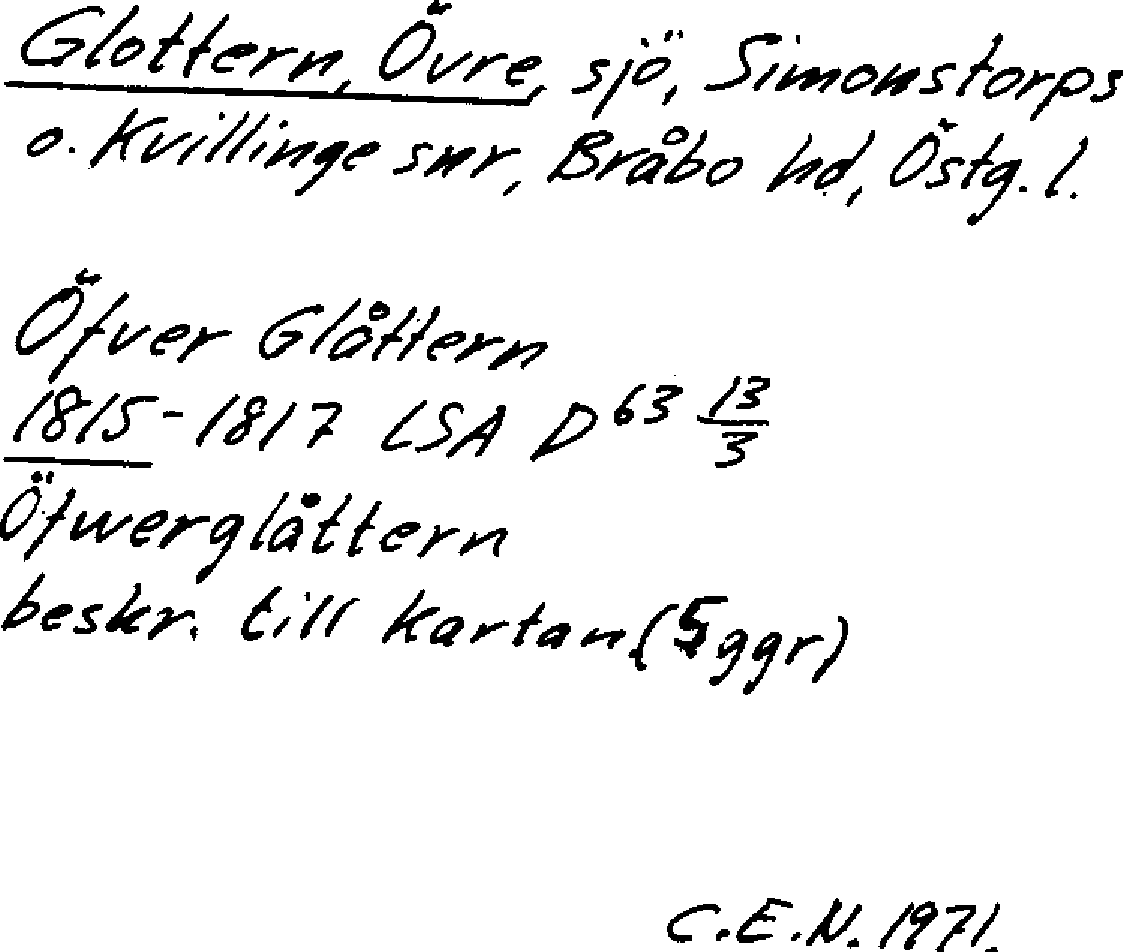 Glottern, Övre, sjö, Simonstorps
o. Kvillinge snr, Bråbo hd, Östg. l.
Öfver Glåttern
1815-1817 LSA D 63 13/3
Öfwerglåttern
beskr. till kartan (5 ggr)
C.E.N. 1971.